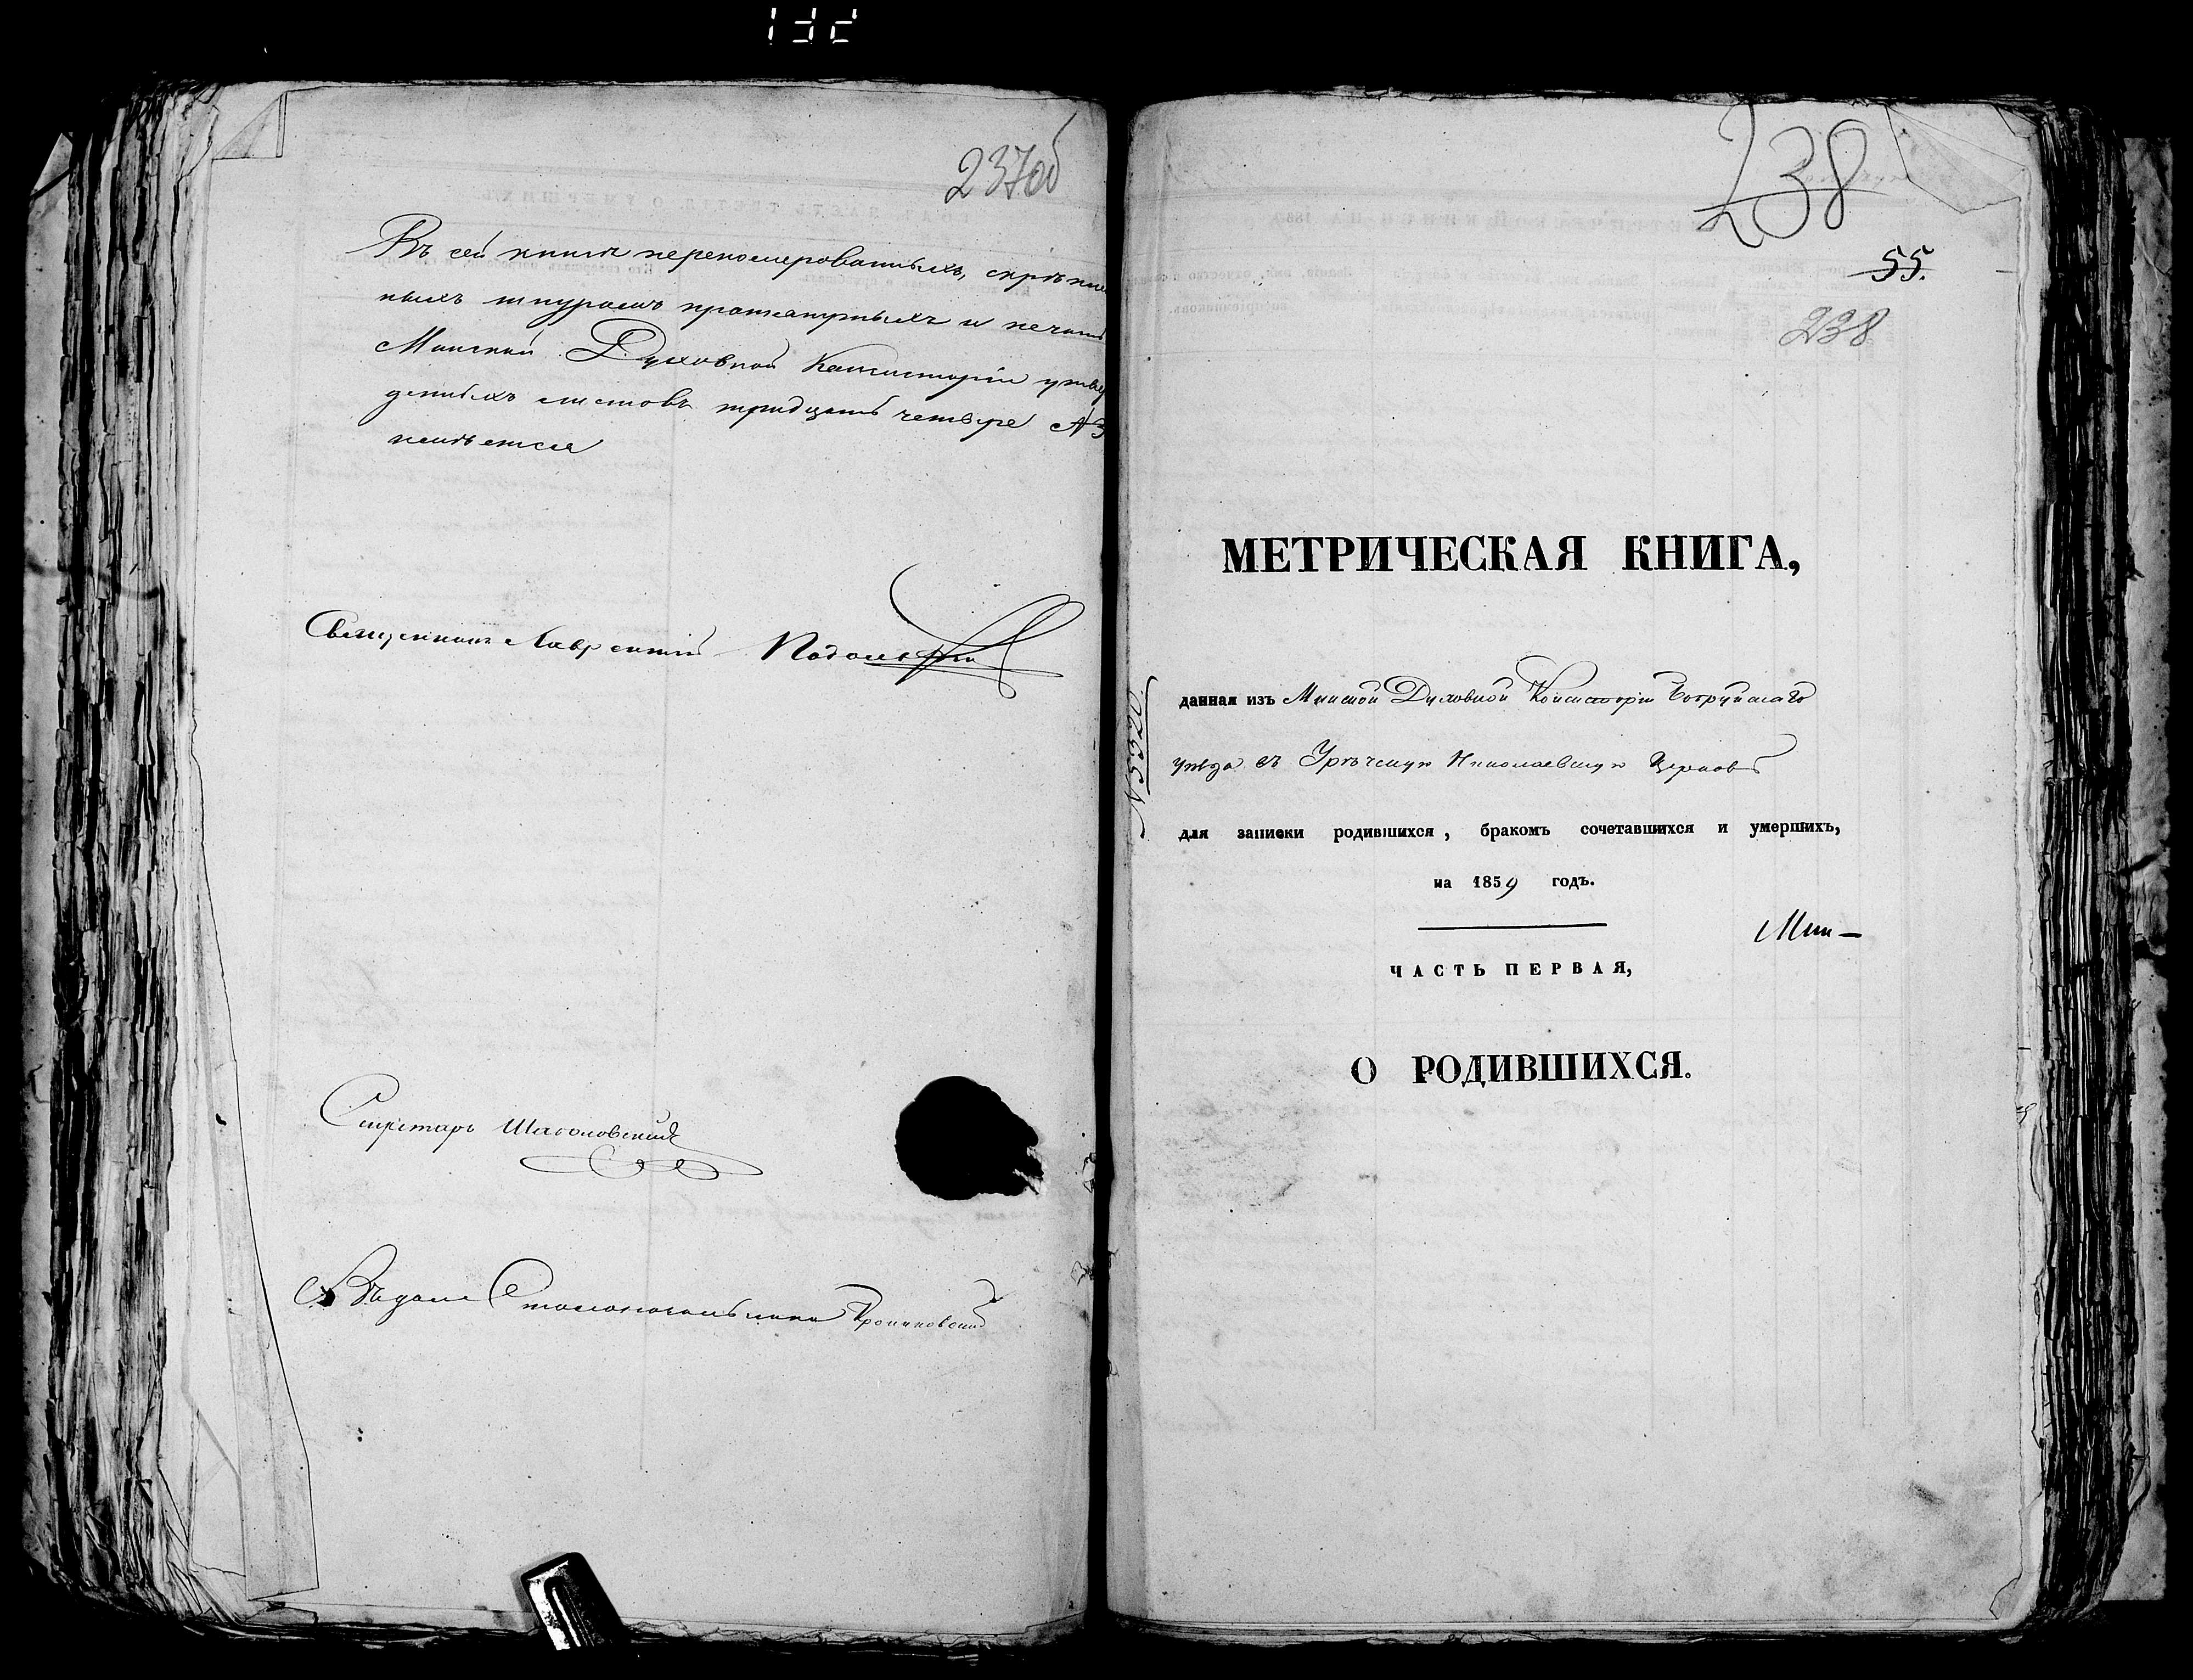 237об
Въ сей книгѣ переномерованныхъ, скрѣплен
ныхъ шнуромъ прошнурныхъ и печатью
Минской Духовной Консисторіи утвер
денныхъ листовъ тридцать четыре № 3
имѣется
Священникъ Лаврентій
Секретарь Шаболовский
Столоначальника
238
55.
238
МЕТРИЧЕСКАЯ КНИГА,
данная изъ Минской Духовной Консисторіи Бобруйскаго
уѣзда въ Урѣчскую Николаевскую Церковь
№ 5320.
для записки родившихся, бракомъ сочетавшихся и умершихъ,
на 1859 годъ.
Мин-
ЧАСТЬ ПЕРВАЯ,
О РОДИВШИХСЯ.